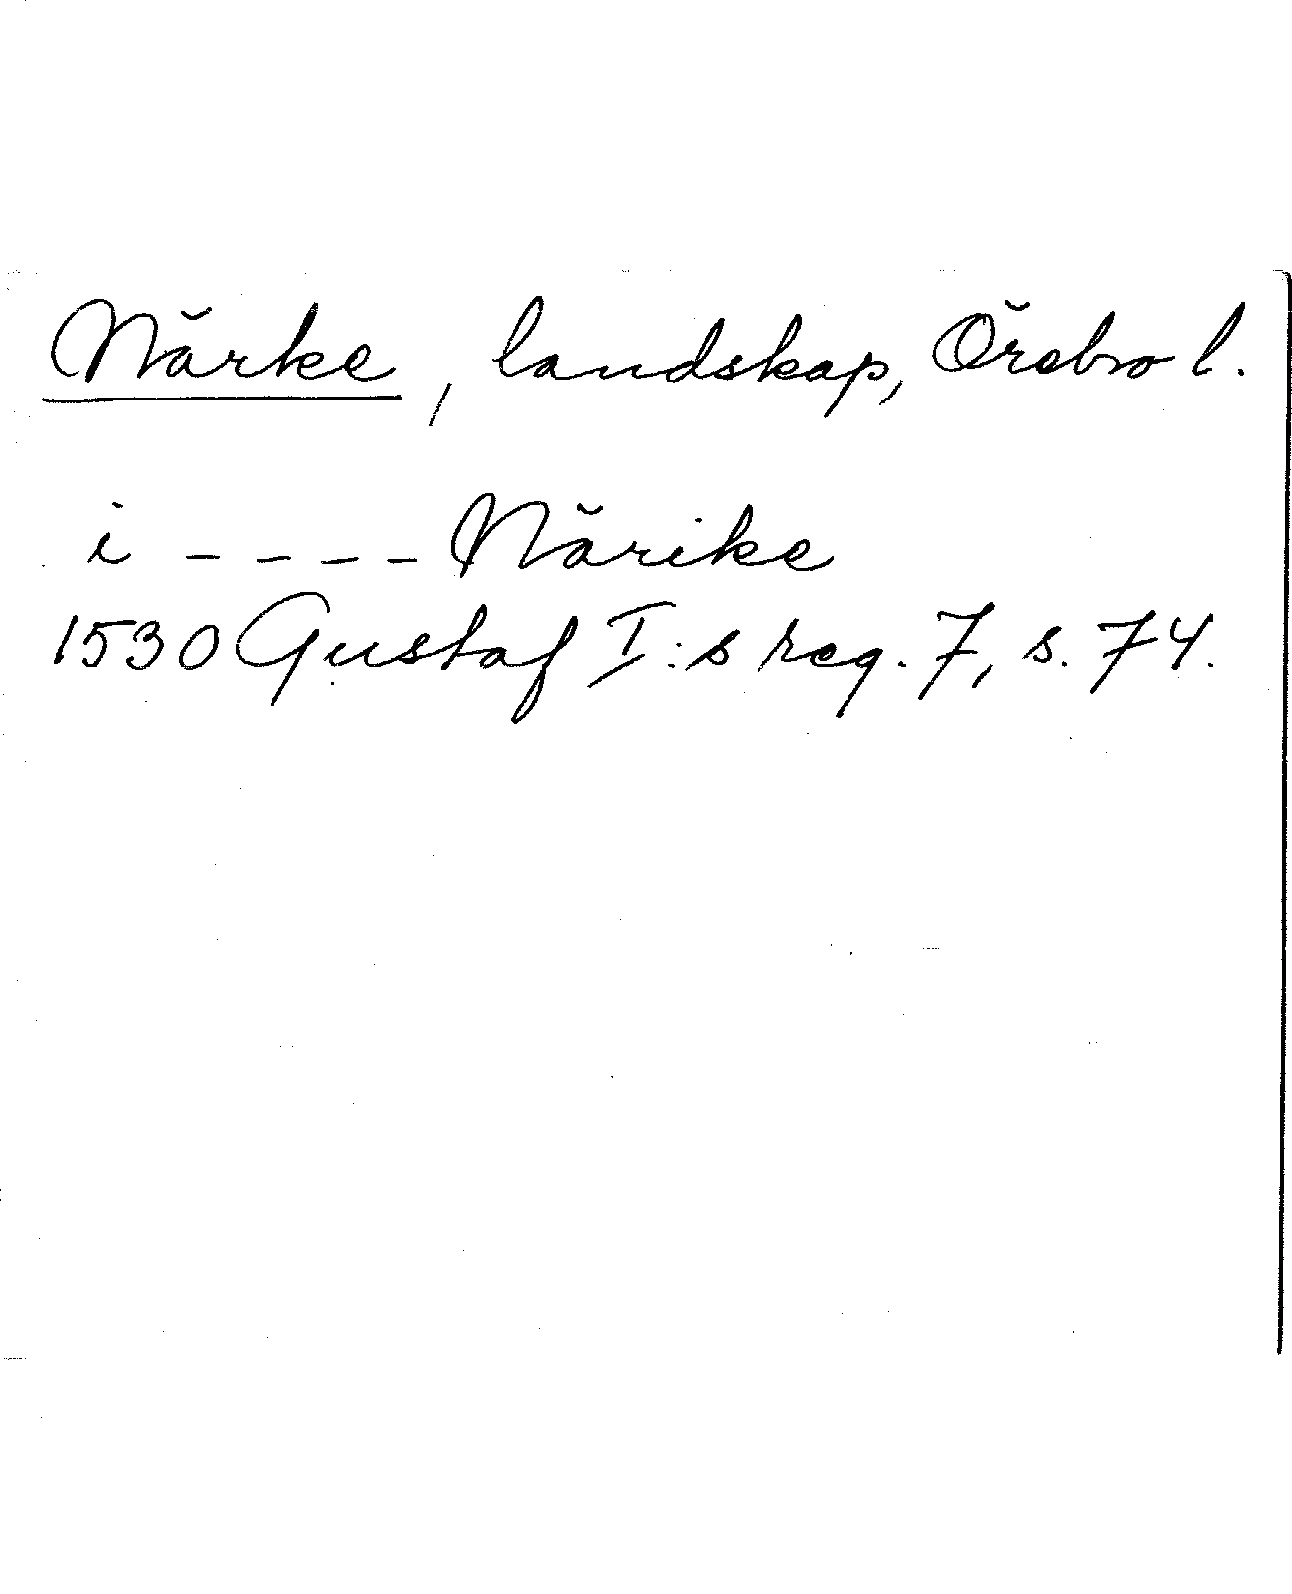 Närke, landskap, Örebro l.
i - - - - Närike
1530 Gustaf I:s reg. 7, s. 74.